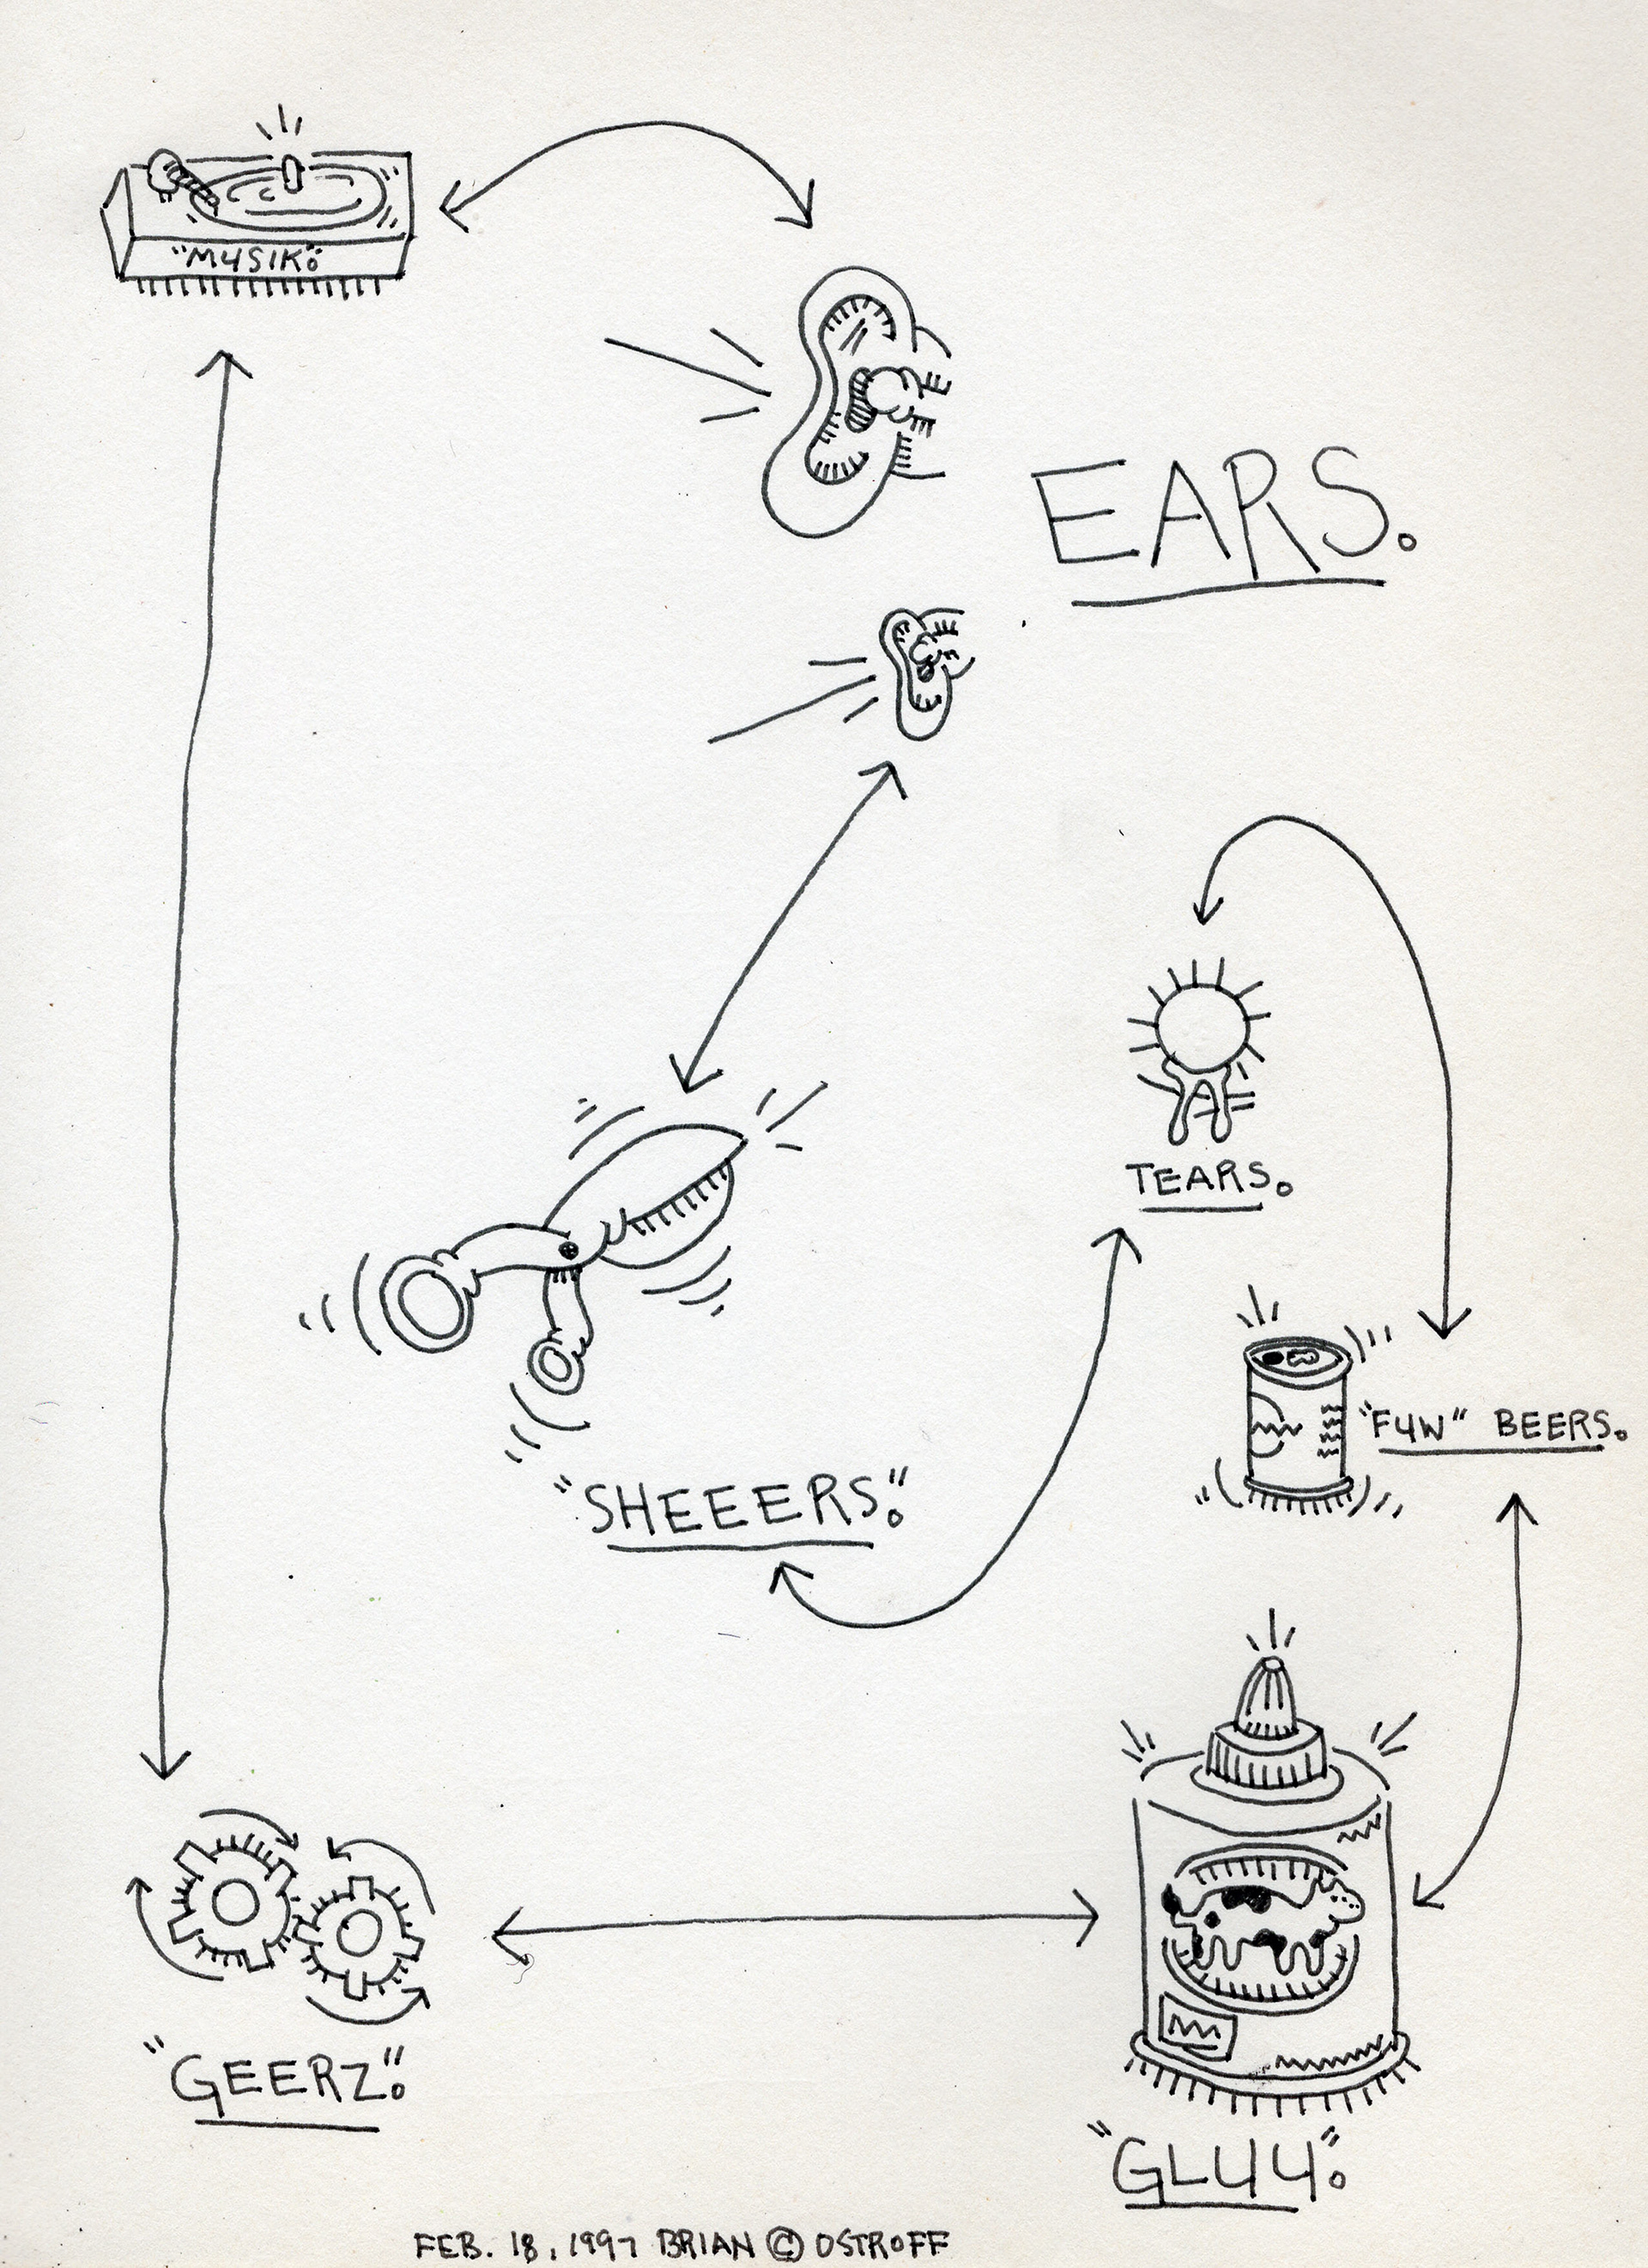 "M4SIK."
EARS.
TEARS.
"F4N" BEERS.
"SHEEERS."
"GEERZ."
"GL44."
FEB. 18, 1997 BRIAN © OSTROFF